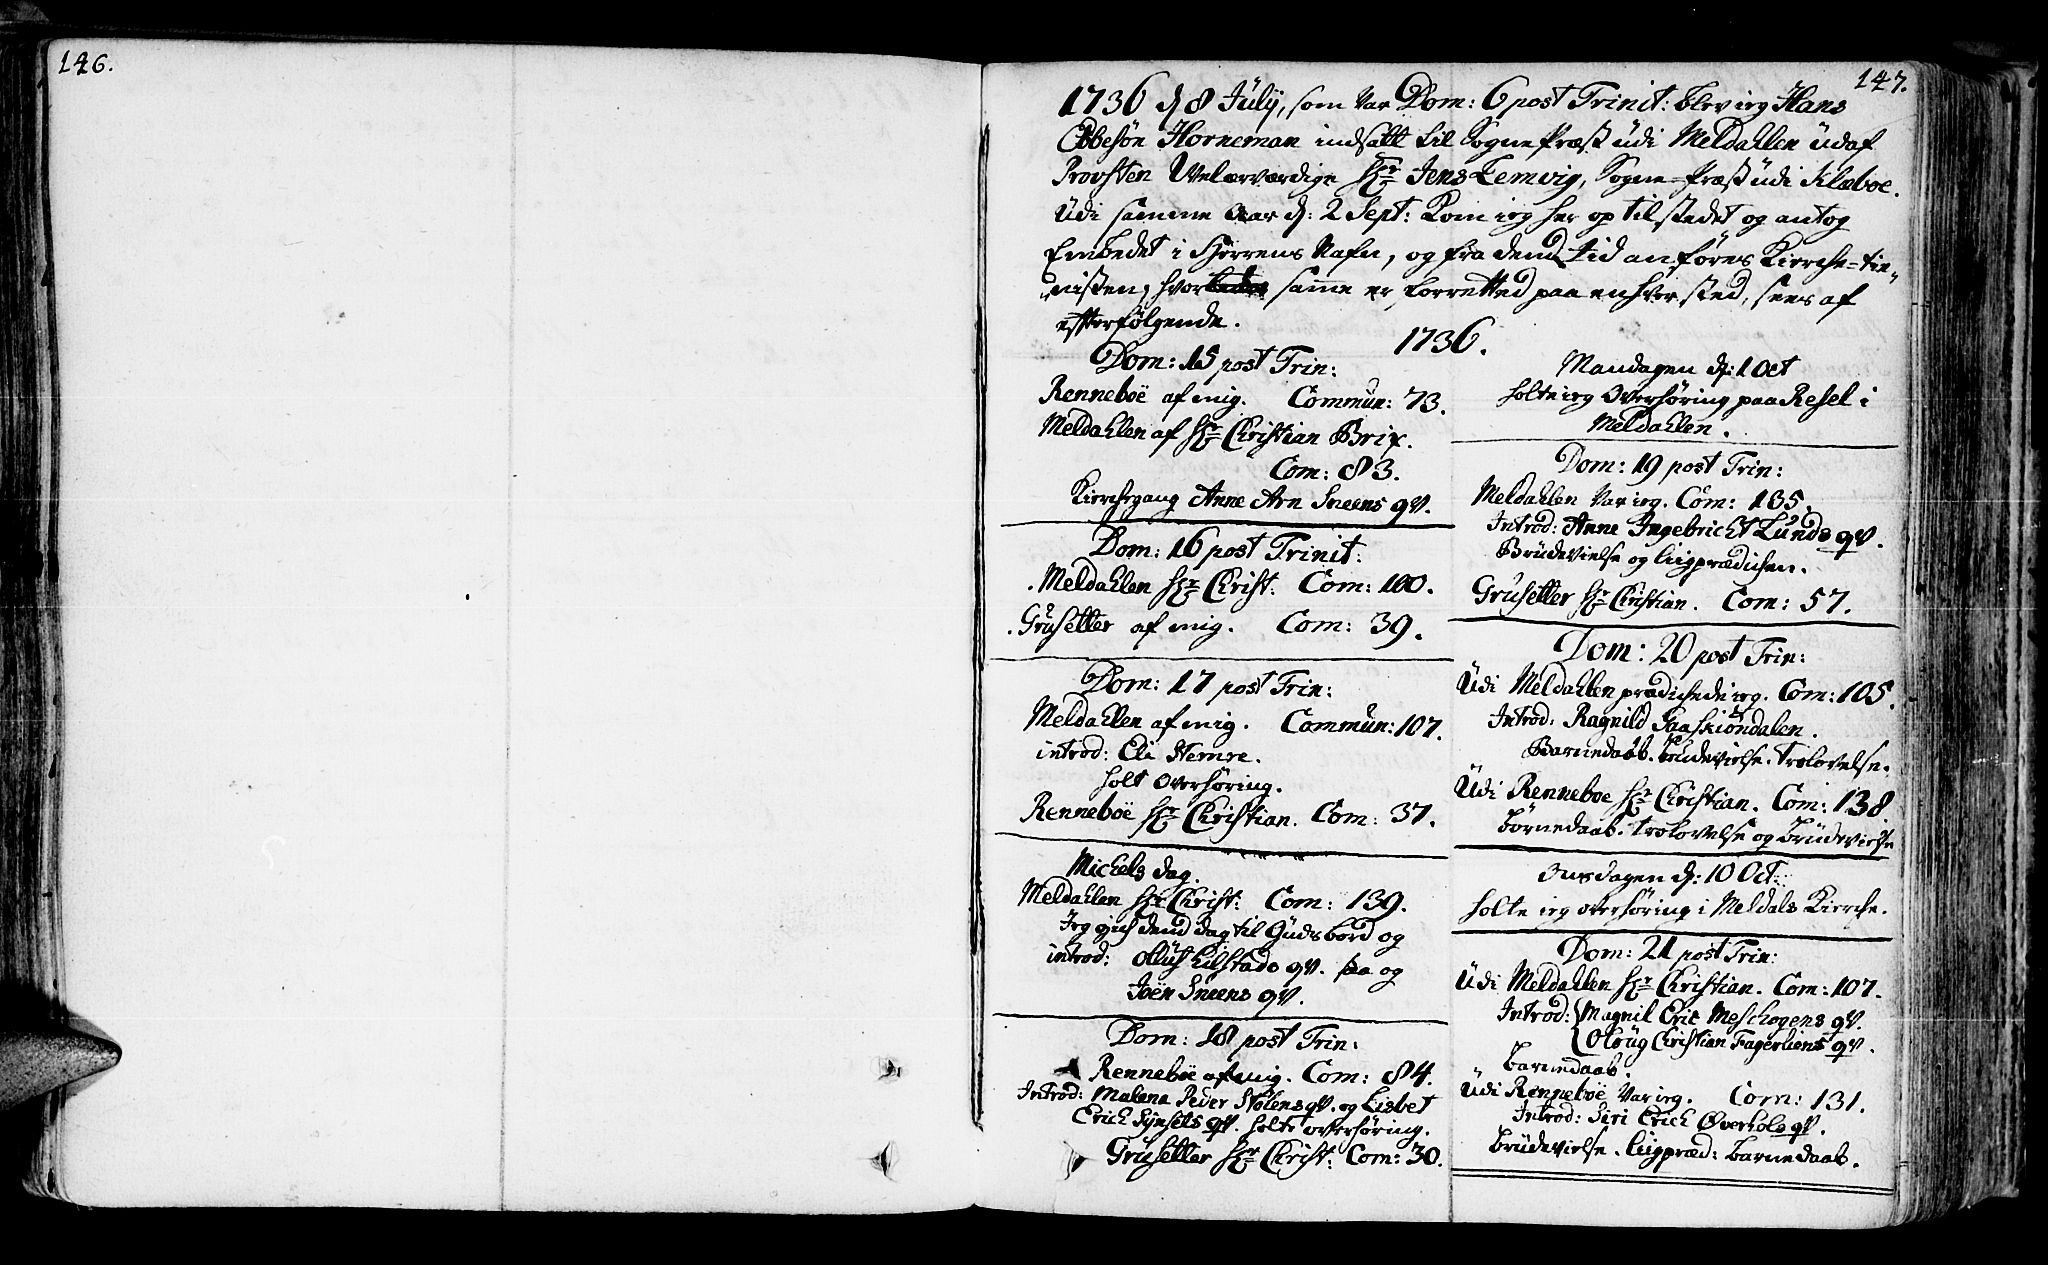 146.
147.
1736 d 8 July, som var Dom: 6 post Trinit: blev ieg Hans
Ebbesøn Horneman indsatt til Sogne Præst üdi Meldahlen üdaf
Provsten Welærværdige Hr Jens Lemvig, Sogne-Præst üdi Klæboe.
Üdi samme Aar d: 2 Sept: kom ieg her op til stedet og antog
Embedet i Herrens Nafn, og fra dend tid anføres Kierche-tie-
nisten, hvor samme er forretted paa enhver sted, sees af
efterfølgende.
1736.
Dom: 15 post Trin:
Renneboë af mig. Commün: 73.
Meldahlen af Hr Christian Brix.
Com: 83.
Kierchegang Anne Arn Sneens qv.
Dom: 16 post Trinit:
Meldahlen Hr Christ: Com: 100.
Grüsetter af mig. Com: 39.
Dom: 17 post Trin:
Meldahlen af mig. Commün: 107.
introd: Eli Stemre.
holt Overhøring.
Renneboë Hr Christian. Com: 37.
Michels dag.
Meldahlen Hr Christ: Com: 139.
Jeg gich dend dag til Güds bord og
introd: qv. og
Joën Sneens qv.
Dom: 18 post Trin:
Renneboe af mig. Com: 84.
Introd: Malena Peder Stølens qv. og Lisbet
Erich Synsets qv. holte overhøring.
Grüsetter Hr Christ: Com: 30.
Mandagen d: 1 Oct
holte ieg Overhøring paa Resel i
Meldahlen.
Dom: 19 post Trin:
Meldahlen var ieg. Com: 135.
Introd: Anne Ingebricht Lunds qv.
Brüdevielse og liigprædichen.
Grüsetter Hr Christian. Com: 57.
Dom: 20 post Trin:
Üdi Meldahlen prædichede ieg. Com: 105.
Introd: Ragnild Aaskiöndalen.
Barnedaab. brüdevielse. trolovelse.
Üdi Renneboe Hr Christian. Com: 138.
børnedaab. trolovelse og brüdevielse
Onsdagen d: 10 Oct:
holte ieg overhøring i Meldals Kierche.
Dom: 21 post Trin:
Üdi Meldahlen Hr Christian. Com: 107.
Introd: Magnil Eric Meschogens qv.
Oloüg Christian Fagerliens qv.
barnedaab.
Üdi Renneboë var ieg. Com: 131.
Introd: Siri Erich Øverhols qv.
brüdevielse. liigpræd: barnedaab.